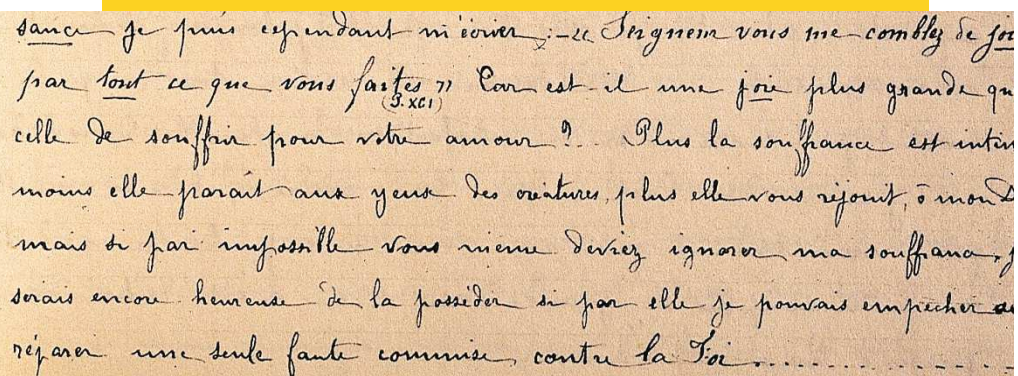 sance je puis cependant m'écrier :- « Seigneur vous me comblez de joi
par tout ce que vous faites » Car est il une joie plus grande qu
(P. XCI)
celle de souffrir pour votre amour ?.. Plus la souffrance est intim
moins elle paraît aux yeux des créatures, plus elle vous réjouit, ô mon D
mais si par impossible vous même deviez ignorer ma souffrance, j
serais encore heureuse de la posséder si par elle je pouvais empêcher ou
réparer une seule faute commise contre la Foi..............